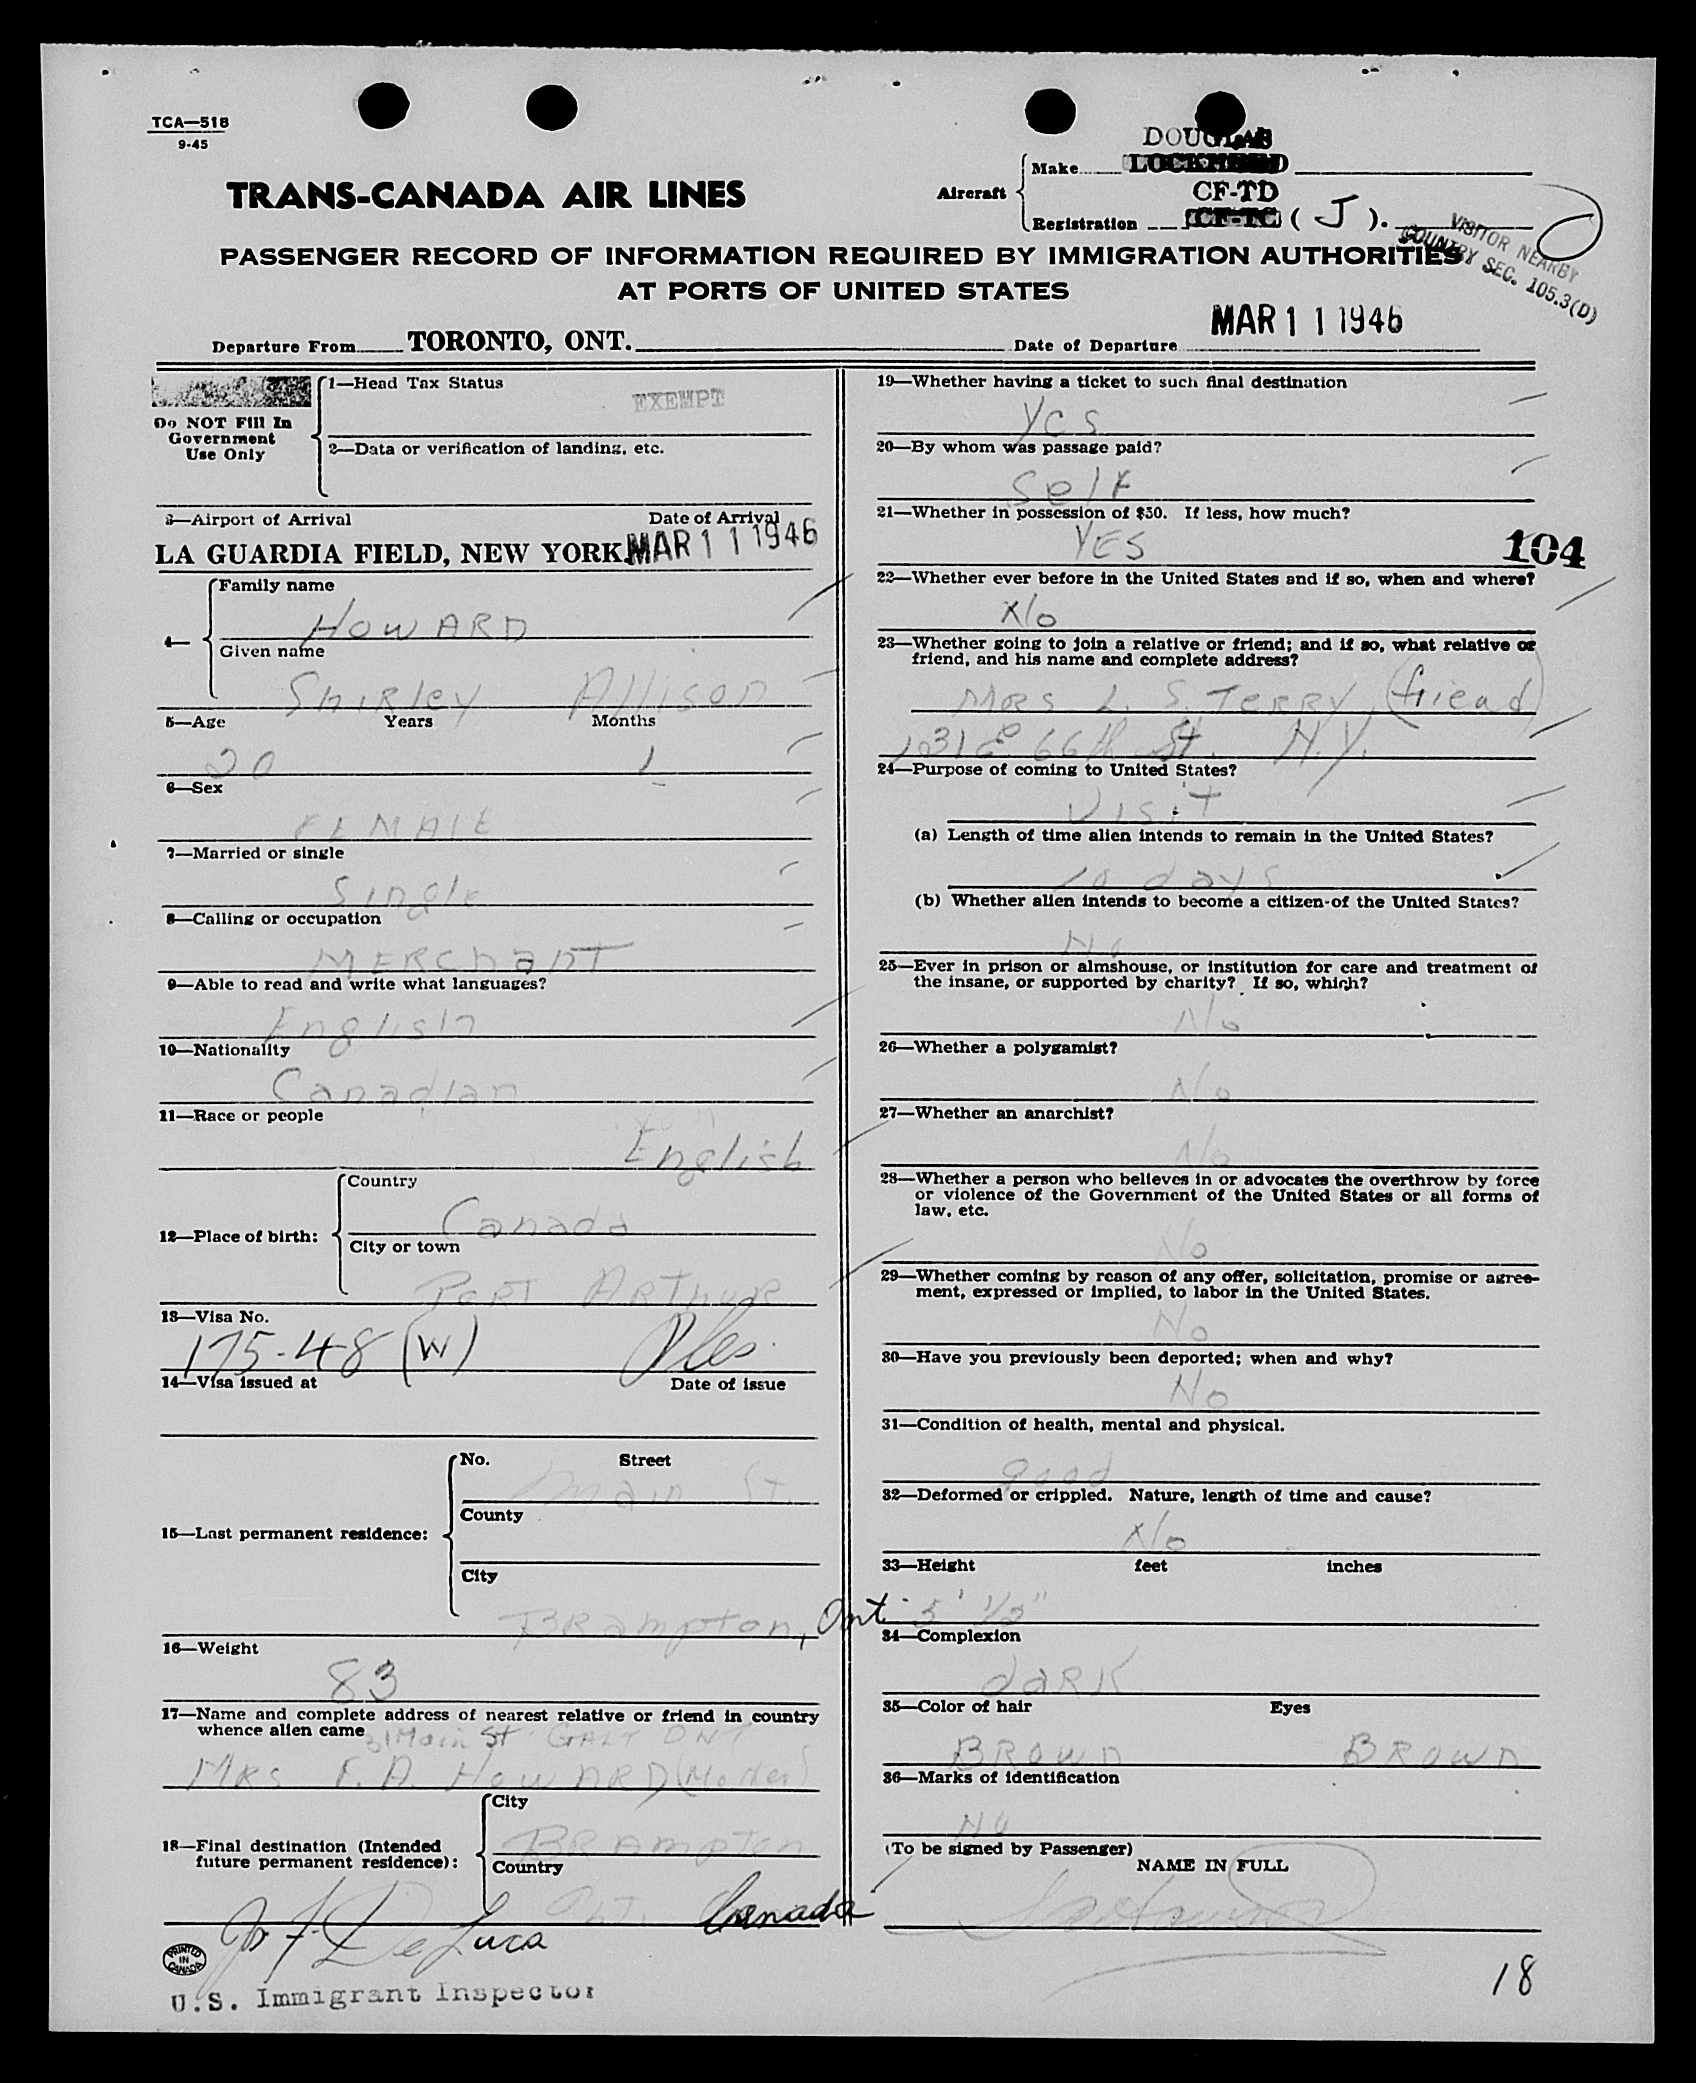 TCA—518
9-45
DOUGLAS
Make LOCKHEED
TRANS-CANADA AIR LINES
Aircraft
CF-TD
Registration CF-TC ( J ).
VISITOR NEARBY
COUNTRY SEC. 105.3(D)
PASSENGER RECORD OF INFORMATION REQUIRED BY IMMIGRATION AUTHORITIES
AT PORTS OF UNITED STATES
MAR 11 1946
Departure From TORONTO, ONT. Date of Departure
Do NOT Fill In
Government
Use Only
1—Head Tax Status
EXEMPT
2—Data or verification of landing, etc.
3—Airport of Arrival Date of Arrival
LA GUARDIA FIELD, NEW YORK. MAR 11 1946
4—
Family name
HOWARD
Given name
SHIRLEY ALLISON
5—Age Years Months
20 1
6—Sex
FEMALE
7—Married or single
Single
8—Calling or occupation
MERCHANT
9—Able to read and write what languages?
English
10—Nationality
Canadian
11—Race or people
English
12—Place of birth:
Country
Canada
City or town
PORT ARTHUR
13—Visa No.
175-48 (W)
14—Visa issued at Date of issue
15—Last permanent residence:
No. Street
Main St.
County
City
BRampton, Ont.
16—Weight
83
17—Name and complete address of nearest relative or friend in country
whence alien came
31 Main St. GALT ONT
MRS F. A. HOWARD (Mother)
18—Final destination (Intended
future permanent residence):
City
BRAmpton
Country
Ont. Canada
De Luca
PRINTED
IN
CANADA
U.S. Immigrant Inspector
19—Whether having a ticket to such final destination
Yes
20—By whom was passage paid?
Self
21—Whether in possession of $50. If less, how much?
YES
104
22—Whether ever before in the United States and if so, when and where?
No
23—Whether going to join a relative or friend; and if so, what relative or
friend, and his name and complete address?
MRS L. S. TERRY (friend)
131 E 66th St. N.Y.
24—Purpose of coming to United States?
Visit
(a) Length of time alien intends to remain in the United States?
10 days
(b) Whether alien intends to become a citizen of the United States?
No
25—Ever in prison or almshouse, or institution for care and treatment of
the insane, or supported by charity? If so, which?
No
26—Whether a polygamist?
No
27—Whether an anarchist?
No
28—Whether a person who believes in or advocates the overthrow by force
or violence of the Government of the United States or all forms of
law, etc.
No
29—Whether coming by reason of any offer, solicitation, promise or agree-
ment, expressed or implied, to labor in the United States.
No
30—Have you previously been deported; when and why?
No
31—Condition of health, mental and physical.
good
32—Deformed or crippled. Nature, length of time and cause?
No
33—Height feet inches
5' 1/2"
34—Complexion
dARK
35—Color of hair Eyes
BROWN BROWN
36—Marks of identification
No
(To be signed by Passenger)
NAME IN FULL
18